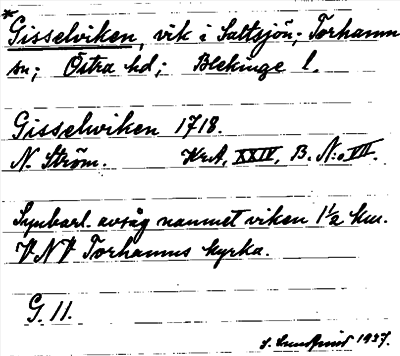 *
Gisselviken, vik i Saltsjön; Torhamn
sn; Östra hd; Blekinge l.
Gisselwiken 1718.
N. Ström. KrA, XXIV, B. N:o VII.
Synbarl. avsåg namnet viken 1½ km.
VNV Torhamns kyrka.
G. 11.
1937.